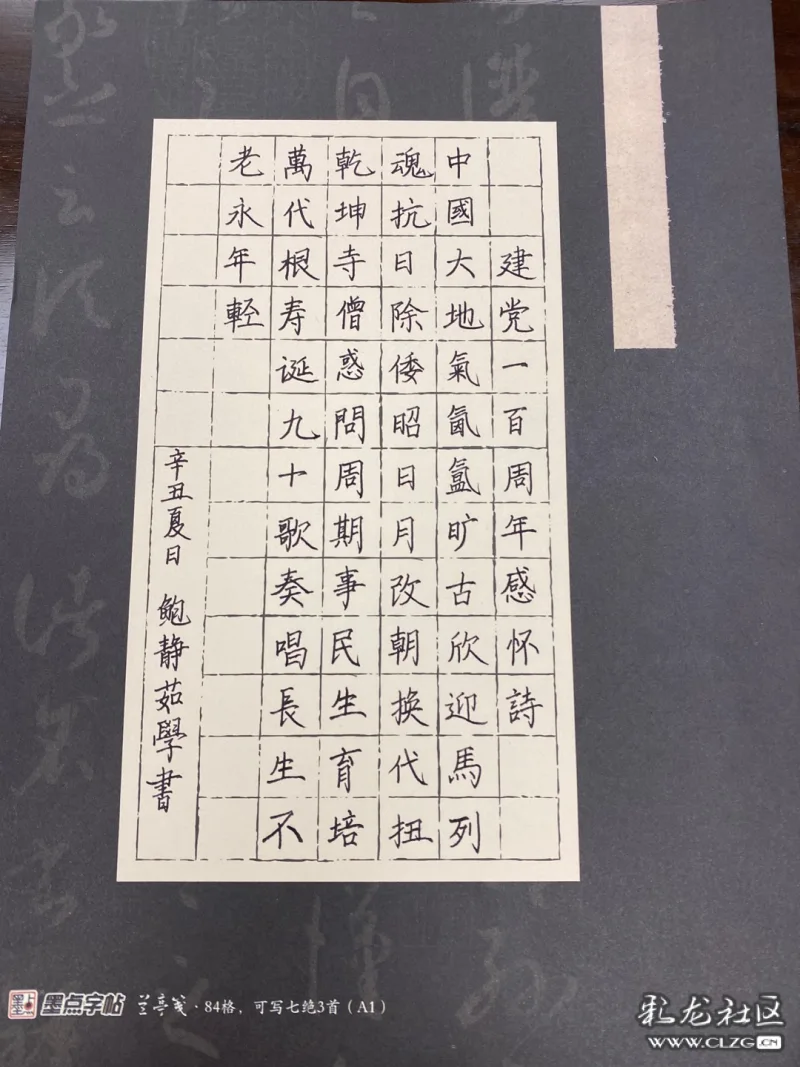 建党一百周年感怀詩
中國大地氣氤氳旷古欣迎馬列
魂抗日除倭昭日月改朝换代扭
乾坤寺僧惑問周期事民生育培
萬代根寿诞九十歌奏唱長生不
老永年輕
辛丑夏日 鲍静茹學書
墨点字帖 兰亭笺·84格，可写七绝3首（A1）
彩龙社区
WWW.CLZG.CN